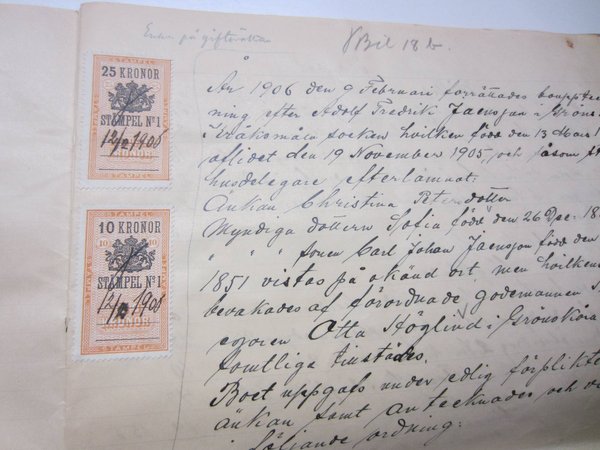 Enka på giftorätten
Bil 18 b.
STÄMPEL
25 KRONOR
STÄMPEL No 1
12/2 1908
KRONOR
STÄMPEL
STÄMPEL
10 KRONOR
10 10
STÄMPEL No 1
12/2 1908
KRONOR
År 1906 den 9 Februari förrättades bouppteck
ning efter Adolf Fredrik Jaensson i Gröns
Kråksmåla socken hvilken född den 13 Mars 1
aflidet den 19 November 1905, och såsom st
husdelägare efterlämnat:
Änkan Christina Petersdotter
Myndiga dottern Sofia född den 26 Dec. 18
" " sonen Carl Johan Jaensson född den
1851 vistas på okänd ort men hvilken
bevakades af förordnade godemannen
Otto Höglind i Grönskåra
samtliga tillstädes.
Boet uppgafs under edlig förplikte
änkan samt antecknades och
i följande ordning: